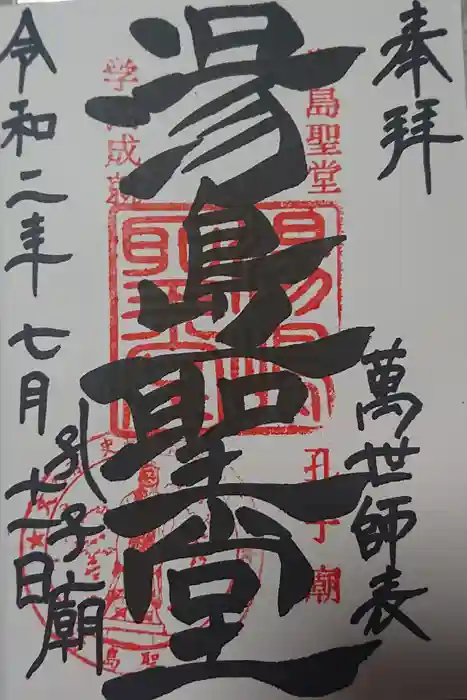 奉拝
萬世師表
湯島聖堂
孔子廟
令和二年七月十二日
湯島聖堂
孔子廟
学業成就
湯島聖堂